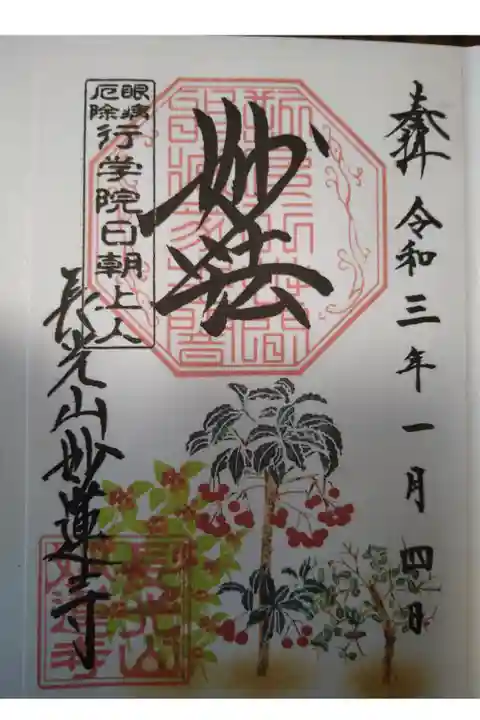 奉拝 令和三年一月四日
妙法
眼病
厄除
行学院日朝上人
長光山妙蓮寺